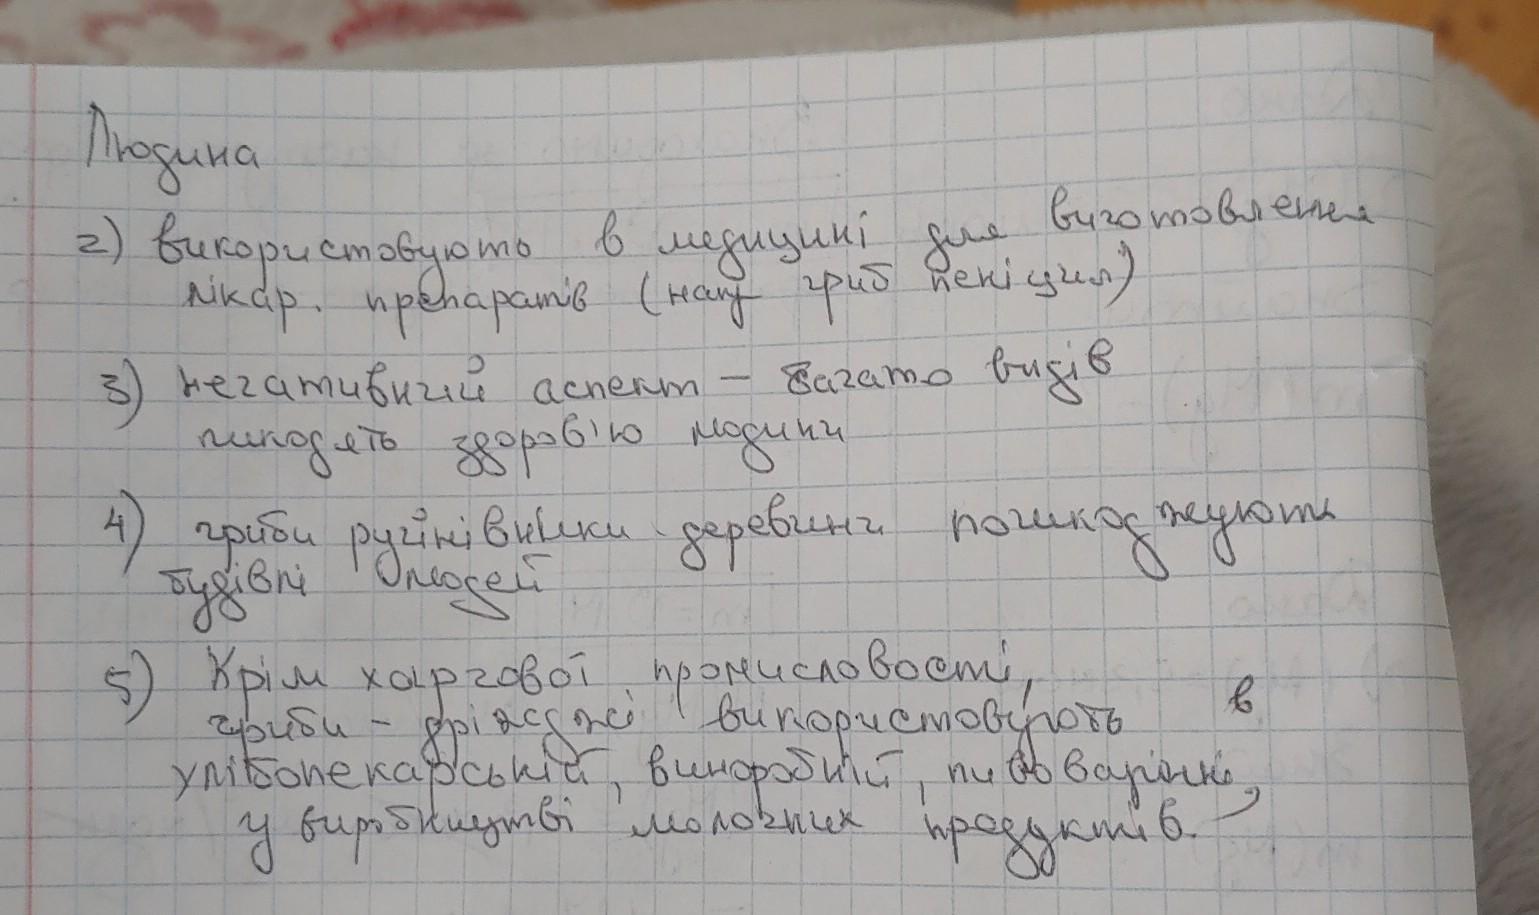 Людина
2) використовують в медицині для виготовлення
лікар. препаратів (напр гриб пеніцил)
3) негативний аспект – багато видів
шкодять здоров'ю людини
4) гриби руйнівники деревини пошкоджують
будівлі людей
5) Крім харчової промисловості,
гриби – дріжджі використовують в
хлібопекарській, виноробній, пивоварінні,
у виробництві молочних продуктів.